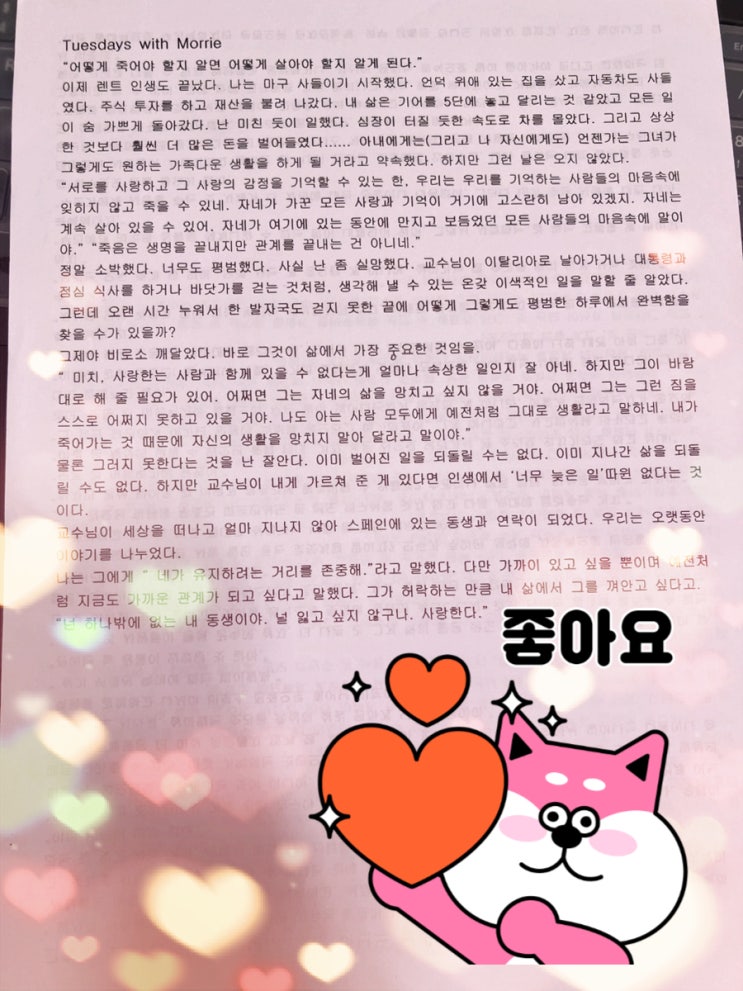 Tuesdays with Morrie
“어떻게 죽어야 할지 알면 어떻게 살아야 할지 알게 된다.”
이제 렌트 인생도 끝났다. 나는 마구 사들이기 시작했다. 언덕 위애 있는 집을 샀고 자동차도 사들
였다. 주식 투자를 하고 재산을 불려 나갔다. 내 삶은 기어를 5단에 놓고 달리는 것 같았고 모든 일
이 숨 가쁘게 돌아갔다. 난 미친 듯이 일했다. 심장이 터질 듯한 속도로 차를 몰았다. 그리고 상상
한 것보다 훨씬 더 많은 돈을 벌어들였다...... 아내에게는(그리고 나 자신에게도) 언젠가는 그녀가
그렇게도 원하는 가족다운 생활을 하게 될 거라고 약속했다. 하지만 그런 날은 오지 않았다.
“서로를 사랑하고 그 사랑의 감정을 기억할 수 있는 한, 우리는 우리를 기억하는 사람들의 마음속에
잊히지 않고 죽을 수 있네. 자네가 가꾼 모든 사랑과 기억이 거기에 고스란히 남아 있겠지. 자네는
계속 살아 있을 수 있어. 자네가 여기에 있는 동안에 만지고 보듬었던 모든 사람들의 마음속에 말이
야.” “죽음은 생명을 끝내지만 관계를 끝내는 건 아니네.”
정말 소박했다. 너무도 평범했다. 사실 난 좀 실망했다. 교수님이 이탈리아로 날아가거나 대통령과
점심 식사를 하거나 바닷가를 걷는 것처럼, 생각해 낼 수 있는 온갖 이색적인 일을 말할 줄 알았다.
그런데 오랜 시간 누워서 한 발자국도 걷지 못한 끝에 어떻게 그렇게도 평범한 하루에서 완벽함을
찾을 수가 있을까?
그제야 비로소 깨달았다. 바로 그것이 삶에서 가장 중요한 것임을.
“ 미치, 사랑한는 사람과 함께 있을 수 없다는게 얼마나 속상한 일인지 잘 아네. 하지만 그이 바람
대로 해 줄 필요가 있어. 어쩌면 그는 자네의 삶을 망치고 싶지 않을 거야. 어쩌면 그는 그런 짐을
스스로 어쩌지 못하고 있을 거야. 나도 아는 사람 모두에게 예전처럼 그대로 생활라고 말하네. 내가
죽어가는 것 때문에 자신의 생활을 망치지 말아 달라고 말이야.”
물론 그러지 못한다는 것을 난 잘안다. 이미 벌어진 일을 되돌릴 수는 없다. 이미 지나간 삶을 되돌
릴 수도 없다. 하지만 교수님이 내게 가르쳐 준 게 있다면 인생에서 ‘너무 늦은 일’따윈 없다는 것
이다.
교수님이 세상을 떠나고 얼마 지나지 않아 스페인에 있는 동생과 연락이 되었다. 우리는 오랫동안
이야기를 나누었다.
나는 그에게 “ 네가 유지하려는 거리를 존중해.”라고 말했다. 다만 가까이 있고 싶을 뿐이며 예전처
럼 지금도 가까운 관계가 되고 싶다고 말했다. 그가 허락하는 만큼 내 삶에서 그를 껴안고 싶다고.
“넌 하나밖에 없는 내 동생이야. 널 잃고 싶지 않구나. 사랑한다.”
좋아요